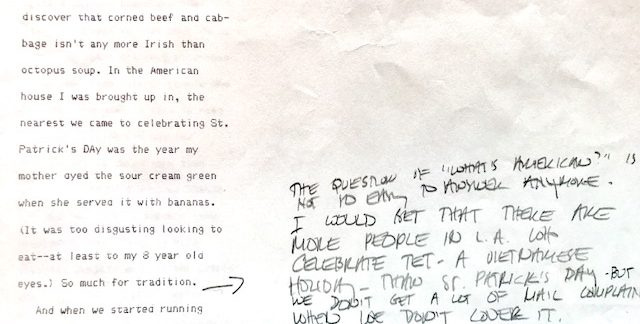 discover that corned beef and cab-
bage isn't any more Irish than
octopus soup. In the American
house I was brought up in, the
nearest we came to celebrating St.
Patrick's DAy was the year my
mother dyed the sour cream green
when she served it with bananas.
(It was too disgusting looking to
eat--at least to my 8 year old
eyes.) So much for tradition.
And when we started running
THE QUESTION OF "WHAT'S AMERICAN?" IS
NOT SO EASY TO ANSWER ANYMORE.
I WOULD BET THAT THERE ARE
MORE PEOPLE IN L.A. WHO
CELEBRATE TET - A VIETNAMESE
HOLIDAY - THAN ST. PATRICK'S DAY - BUT
WE DON'T GET A LOT OF MAIL COMPLAIN
WHEN WE DON'T COVER IT.